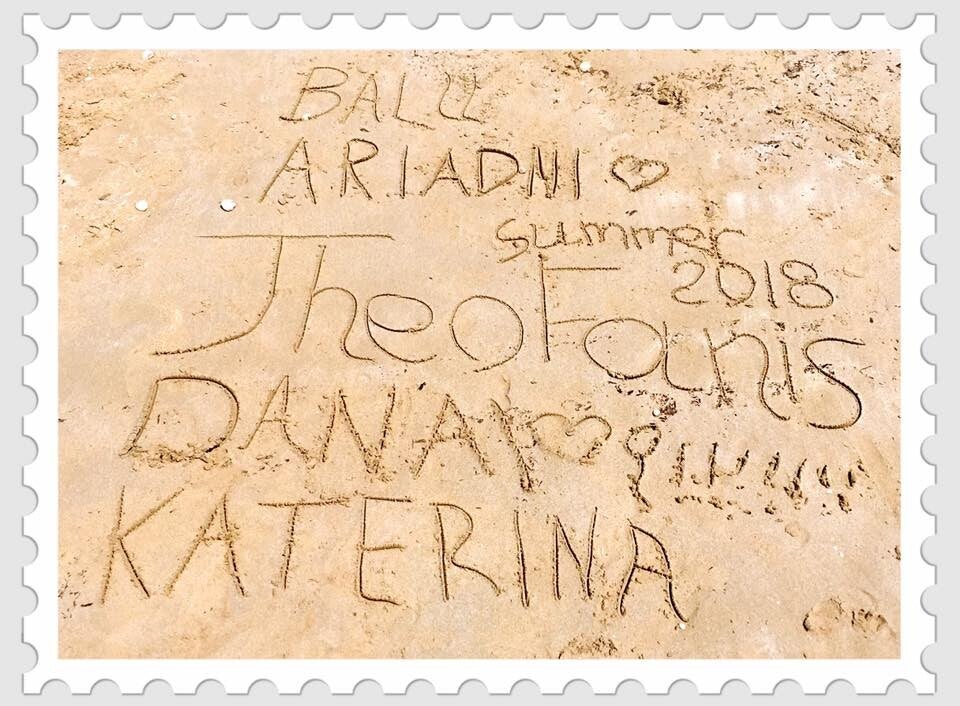 BALU
ARIADNI
summer
2018
TheoFanis
DANAI
KATERINA